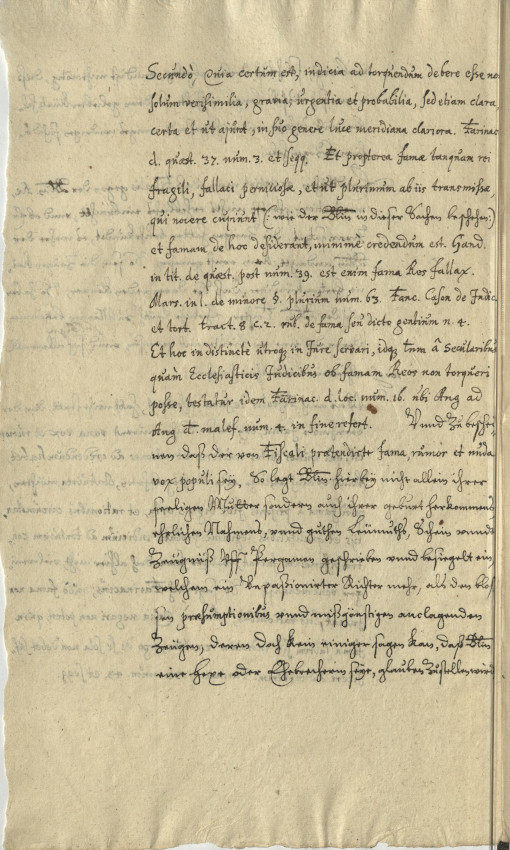 Secundò, Quia certum est, indicia ad torquendum debere esse no
solum verisimilia, gravia, urgentia et probabilia, sed etiam clara
certa et ut ajunt, in suo genere luce meridiana clariora. Farinac.
d. quæst. 37. num. 3. et seqq. Et propterea famæ tanquam rei
fragili, fallaci perniciosæ, et ut plurimum ab iis transmissæ,
qui nocere cupiunt (: wie der Bltin in dieser Sachen beschehen :)
et famam de hoc desiderant, minimè credendum est. Gand.
in tit. de quæst. post num. 39. est enim fama Ros fallax.
Mars. in l. de minore §. plurium num. 63. Franc. Cason de Indic.
et tort. tract. 8. c. 2. rub. de fama, seu dicto gentium n. 4.
Et hoc indistinctè utroq; in Jure servari, idq; tam â Secularibus
quàm Ecclesiasticis Judicibus. ob famam Reos non torqueri
posse, testatur idem Farinac. d. loc. num. 16. ubi Ang ad
Ang d. malef. num. 4. in fine refert. Vnnd zu beschei-
nen daß der von Fiscali prætendirte fama, rumor et nuda
vox populi sey, So legt Bltin hirbey nicht allein ihrer
seeligen Mutter sondern auch ihrer geburt herkommens
ehrlichen Nahmens, vnnd guthen Leumuths, Schein vnndt
Zeugnüß vff Pergamen geschrieben vnnd besiegelt ein,
welchem ein vnpassionirter Richter mehr, als den blos-
sen præsumptionibus vnnd mißgünstigen anclagenden
Zeugen, deren doch kein einiger sagen kan, daß Bltin
eine Hexe oder Ehebrecherin seye, glauben zustellen wird